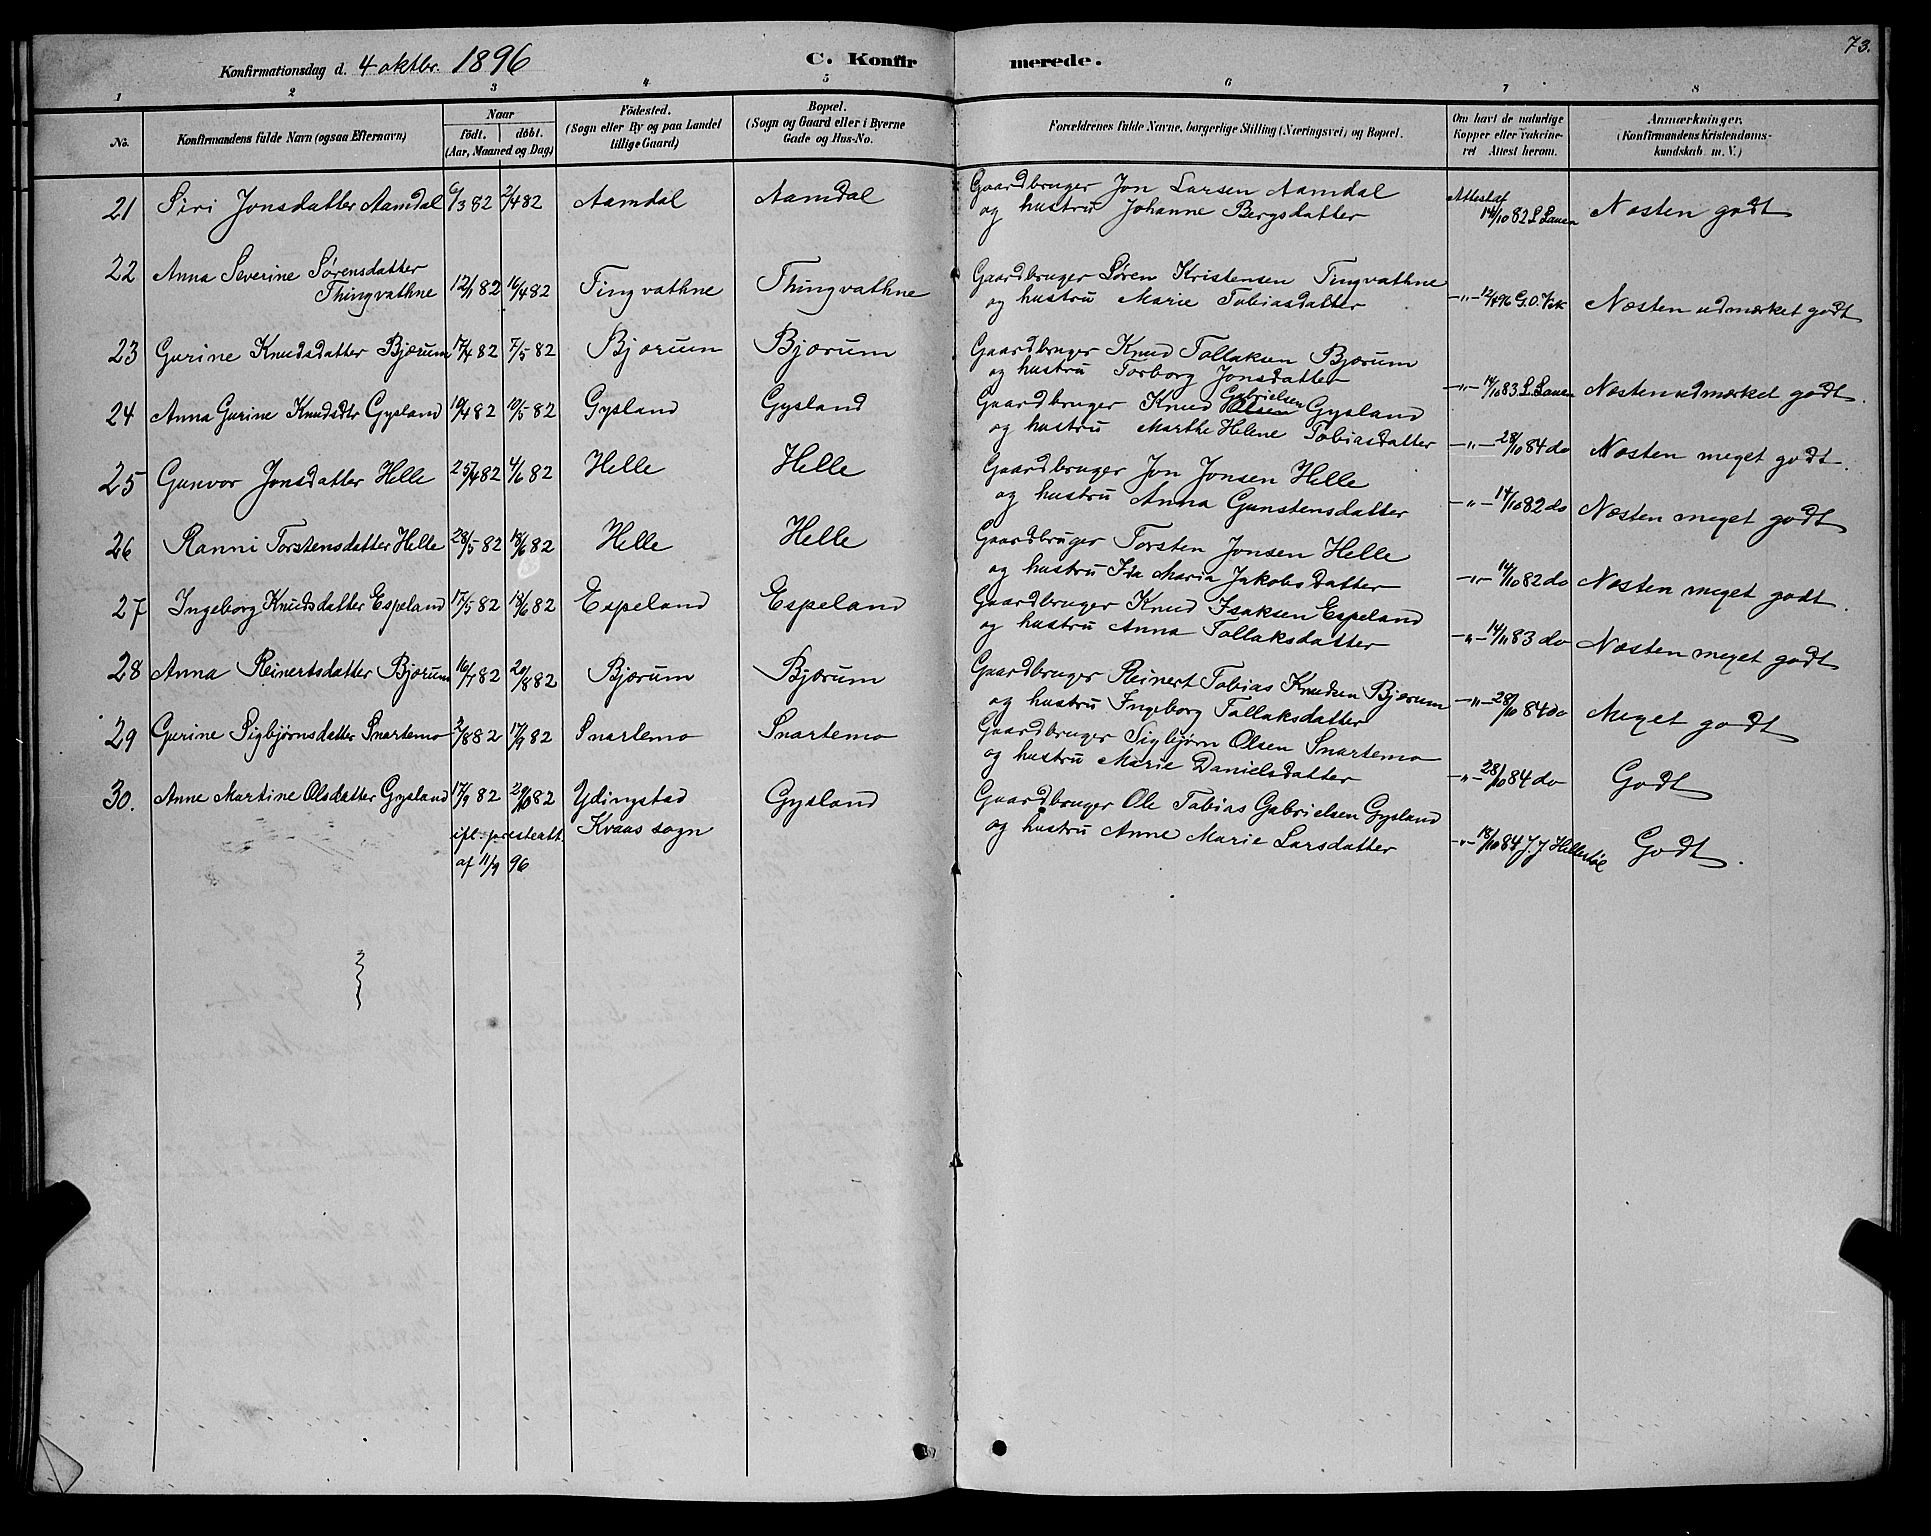 73.
Konfirmationsdag d. 4 oktbr. 1896 C. Konfirmerede.
1 2 3 4 5 6 7 8
No. Konfirmandens fulde Navn (ogsaa Efternavn) Naar födt. döbt. (Aar, Maaned og Dag) Födested. (Sogn eller By og paa Landet tillige Gaard) Bopæl. (Sogn og Gaard eller i Byerne Gade og Hus-No. Forældrenes fulde Navne, borgerlige Stilling (Næringsvei) og Bopæl. Om havt de naturlige Kopper eller vakcineret Attest herom. Anmærkninger. (Konfirmandens Kristendomskundskab m. V.)
21 Siri Jonsdatter Aamdal 6/3 82 2/4 82 Aamdal Aamdal Gaardbruger Jon Larsen Aamdal Attest af
og hustru Johanne Bergsdatter 14/10 82 Næsten godt
22 Anna Severine Sørensdatter
Thingvathne 12/1 82 16/4 82 Tingvathne Thingvathne Gaardbruger Søren Kristensen Tingvathne
og hustru Marie Tobiasdatter -"- G.O. Næsten udmærket godt
23 Gurine Knudsdatter Bjærum 17/4 82 7/5 82 Bjærum Bjærum Gaardbruger Knud Tollaksen Bjærum
og hustru Torborg Jonsdatter -"- 14/10 83 Næsten udmærket godt.
24 Anna Gurine Knudsdtr Gysland 19/4 82 10/5 82 Gysland Gysland Gaardbruger Knud Olsen Gabrielsen Gysland
og hustru Marthe Helene Tobiasdatter -"- 28/10 84 do Næsten meget godt.
25 Gunvor Jonsdatter Helle 25/4 82 4/6 82 Helle Helle Gaardbruger Jon Jonsen Helle
og hustru Anna Gunstensdatter -"- 14/10 82 do Næsten meget godt
26 Ranni Torstensdatter Helle 28/5 82 18/6 82 Helle Helle Gaardbruger Torsten Jonsen Helle
og hustru Ida Maria Jakobsdatter -"- 14/10 82 do Næsten meget godt.
27 Ingeborg Knudsdatter Espeland 17/5 82 18/6 82 Espeland Espeland Gaardbruger Knud Isaksen Espeland
og hustru Anna Tollaksdatter -"- 14/11 83 do Næsten meget godt
28 Anna Reinertsdatter Bjærum 16/7 82 20/8 82 Bjærum Bjærum Gaardbruger Reinert Tobias Knudsen Bjærum
og hustru Ingeborg Tollaksdatter -"- 28/10 84 do Meget godt
29 Gurine Sigbjørnsdatter Snartemo 2/8 82 17/9 82 Snartemo Snartemo Gaardbruger Sigbjørn Olsen Snartemo
og hustru Marie Danielsdatter -"- 28/10 84 do Godt
30. Anne Martine Olsdatter Gysland 17/9 82 29/10 82 Ydingstad Gysland Gaardbruger Ole Tobias Gabrielsen Gysland
ifl. presteatt. Kvaas sogn og hustru Anne Marie Larsdatter -"- 18/10 84 J.J Godt.
af 11/9 96